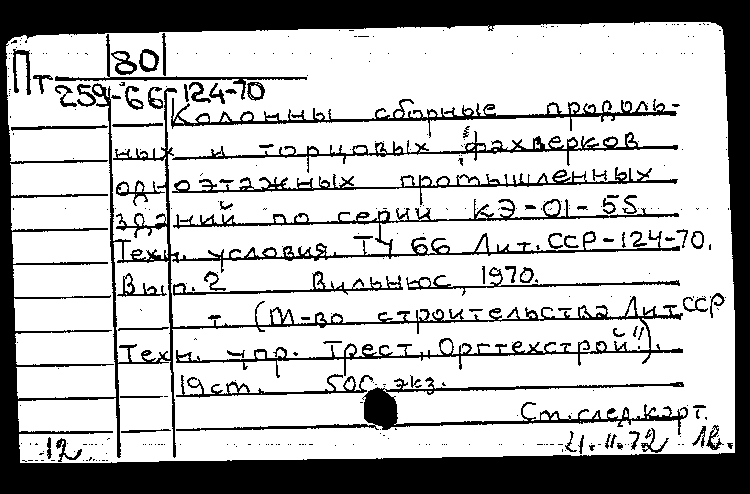 80
Пт
259-66-124-70
Колонны сборные продоль-
ных и торцовых фахверков
одноэтажных промышленных
зданий по серии КЭ-01-55.
Техн. условия. ТУ 66 Лит.ССР-124-70.
Вып. 2 Вильнюс, 1970.
т. (М-во строительства Лит.ССР
Техн. упр. Трест „Оргтехстрой").
19 ст. 500 экз.
Ст. след. карт.
12 4.II.72 1в.